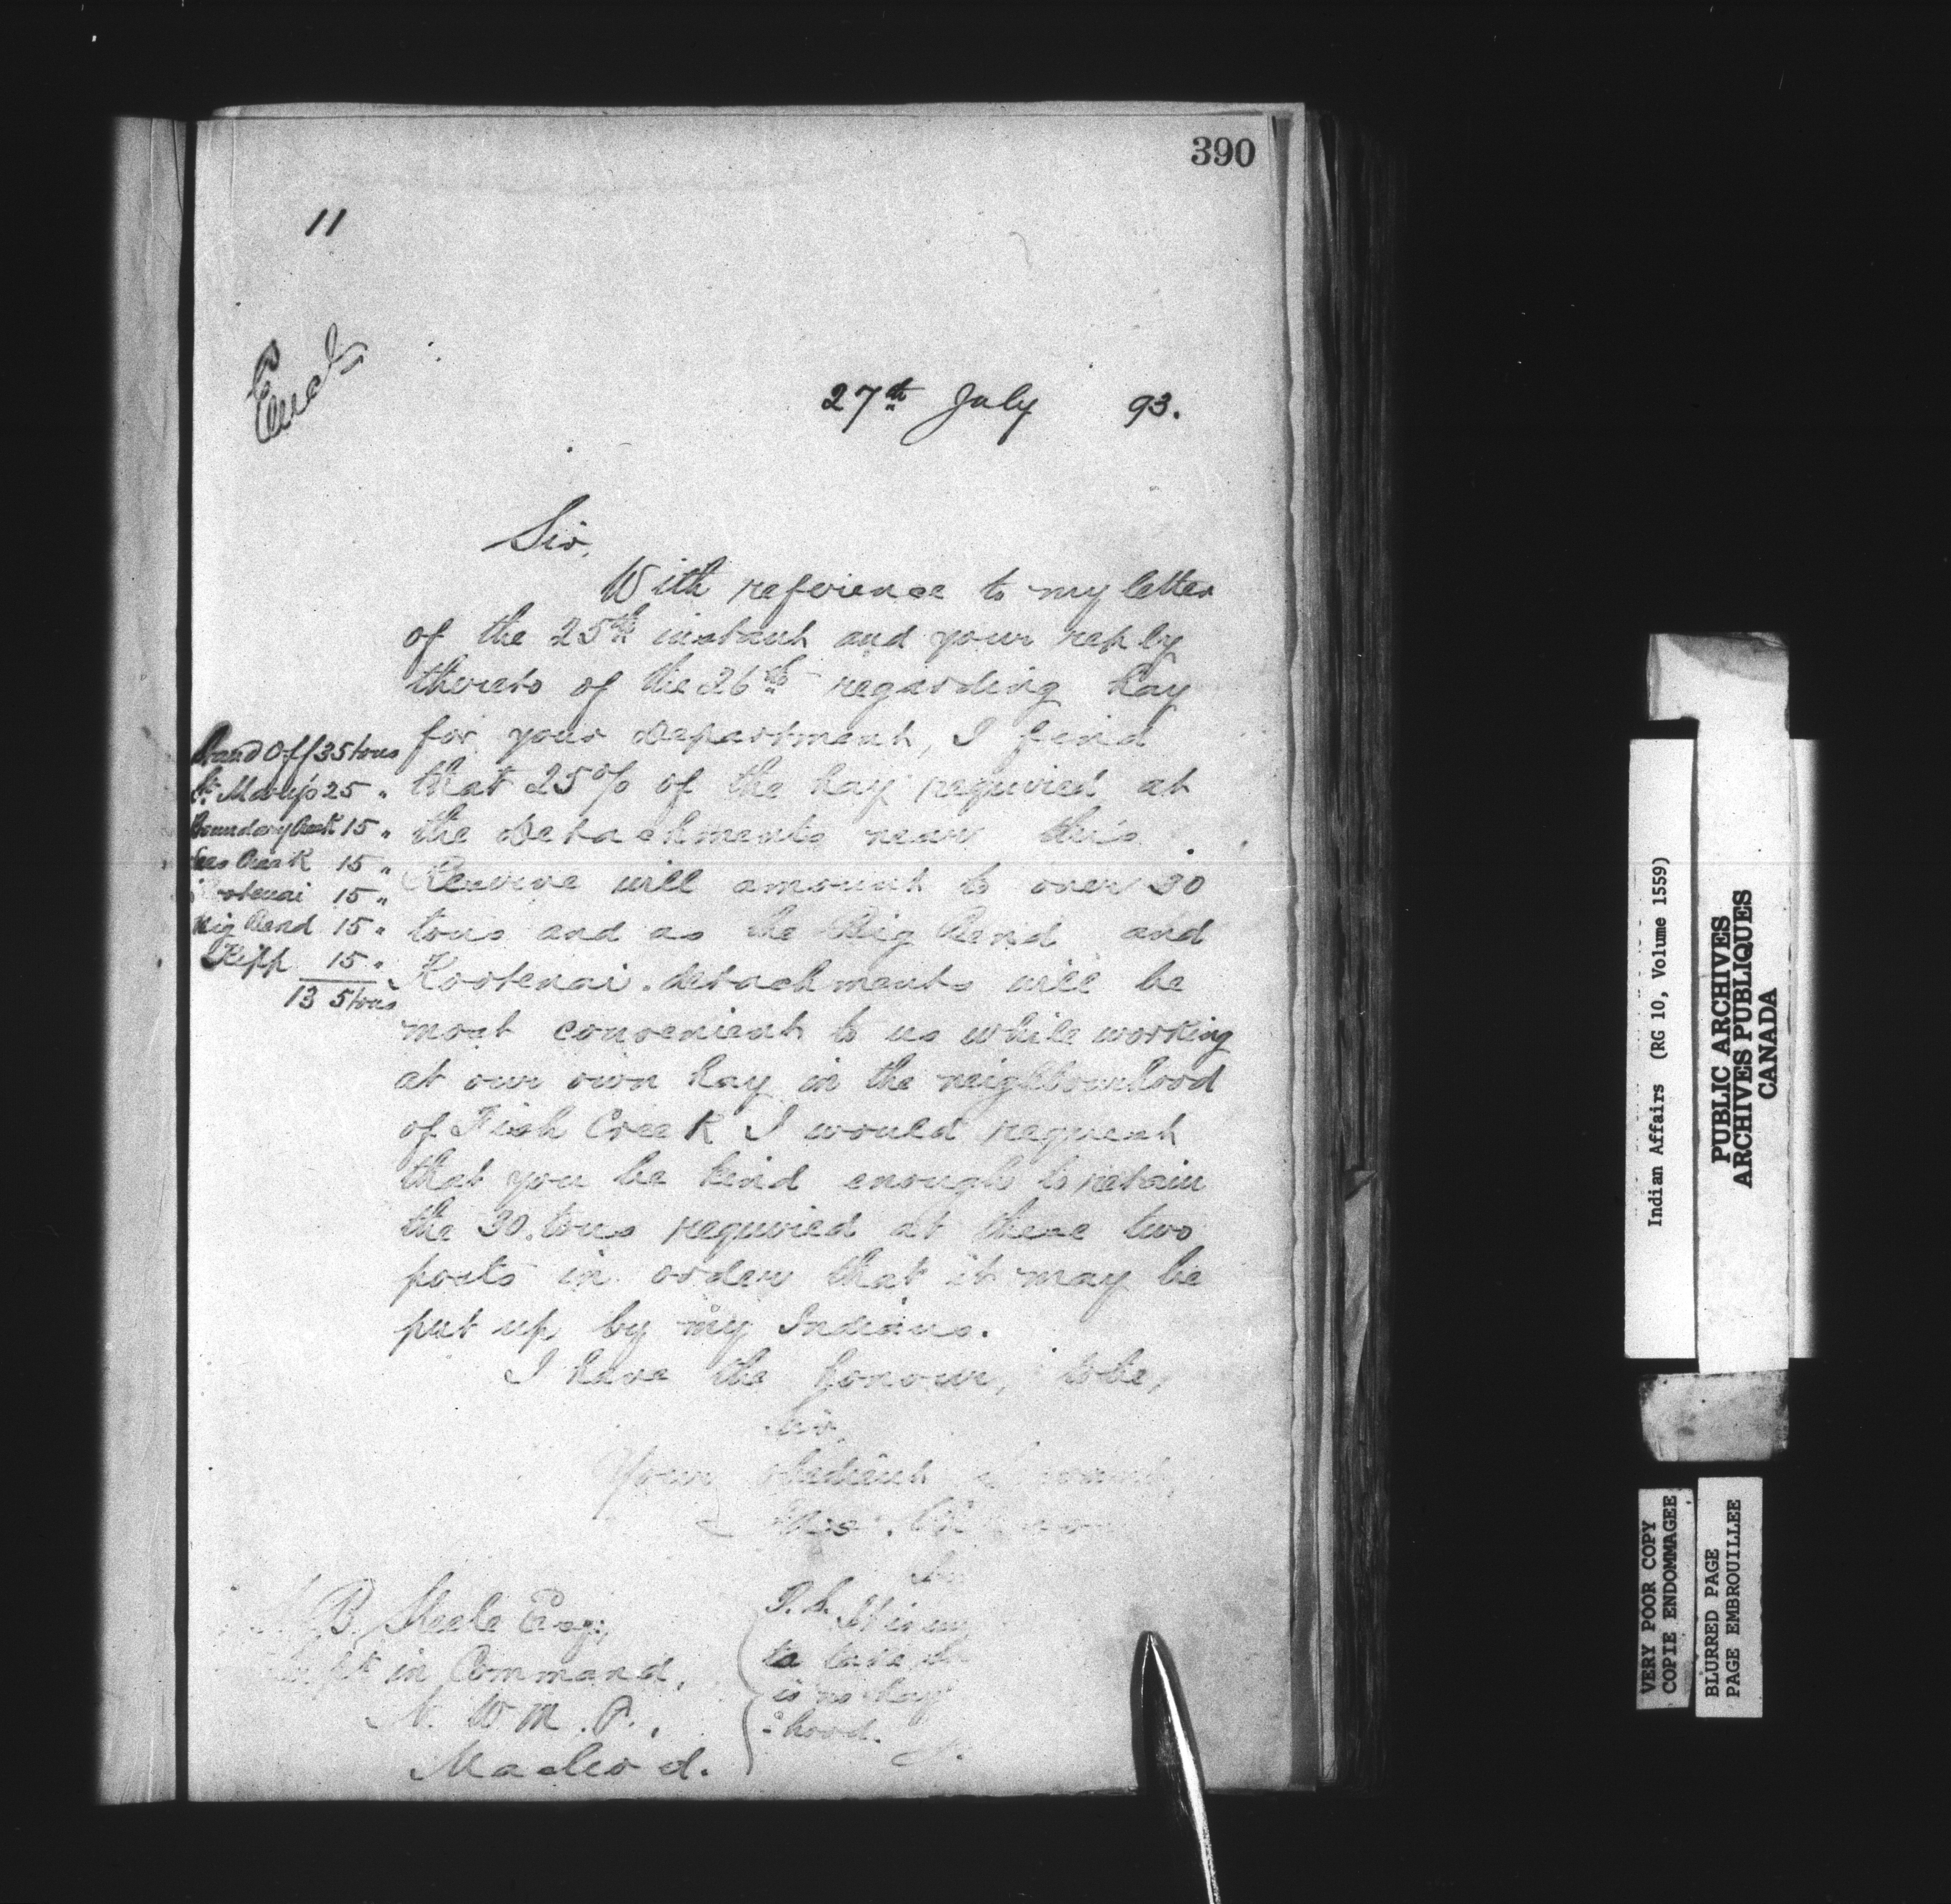 390
11
27th July 93.
Sir,
With reference to my letter
of the 25th instant and your reply
thereto of the 26th regarding hay
for your Department, I find
that 25% of the hay required at
the Detachments near this
Reserve will amount to over 30
tons and as the Big Bend and
Kootenai detachments will be
most convenient to us while working
at our own hay in the neighbourhood
of Fish Creek I would request
that you be kind enough to retain
the 30 tons required at these two
posts in order that it may be
put up by my Indians.
I have the honour, to be,
Sir,
Your obedient servant,
Stand Off 35 tons
St. Mary's 25 "
Boundary Creek 15 "
Lees Creek 15 "
Kootenai 15 "
Big Bend 15 "
Kipp 15 "
135 tons
B. Steele Esq;
Supt in Command,
N. W. M. P.,
Macleod.
P.S. It is
to take
is no hay
hood.
Indian Affairs (RG 10, Volume 1559)
PUBLIC ARCHIVES
ARCHIVES PUBLIQUES
CANADA
VERY POOR COPY
COPIE ENDOMMAGEE
BLURRED PAGE
PAGE EMBROUILLEE